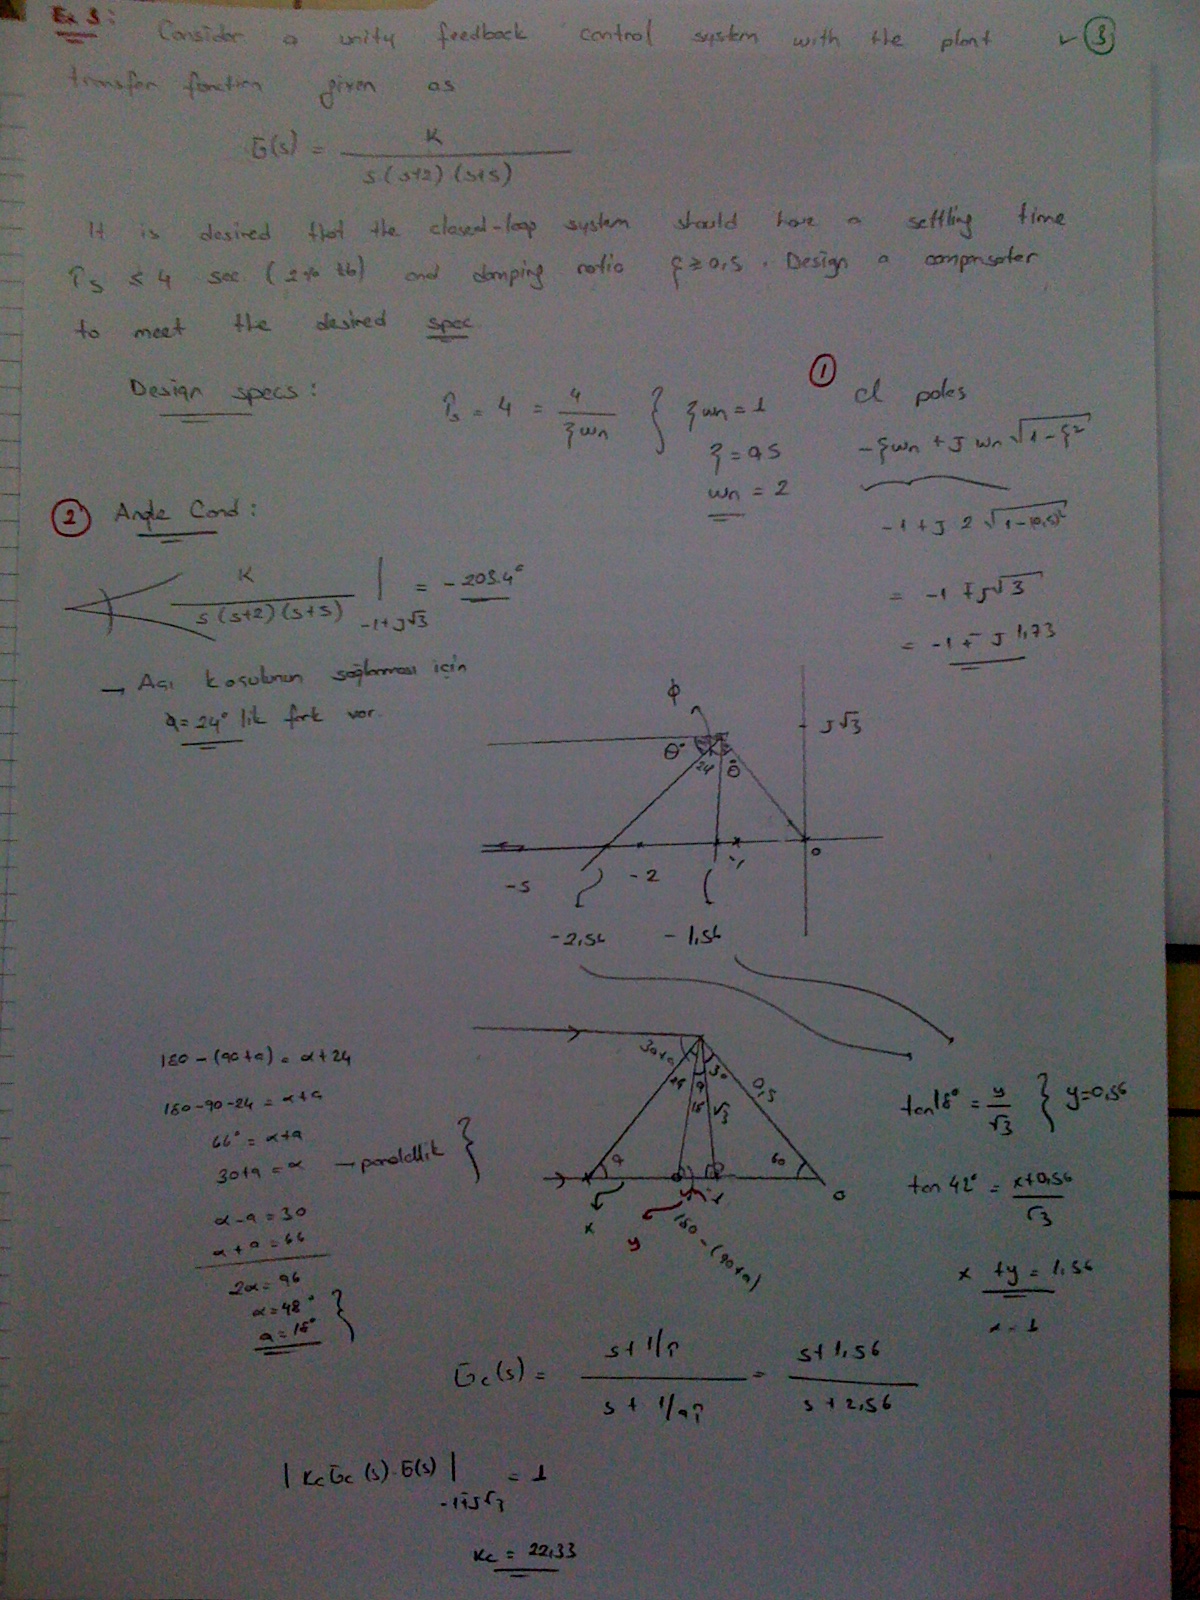 Ex 3: Consider a unity feedback control system with the plant
3
transfer function given as
G(s) = K / s(s+2)(s+5)
It is desired that the closed-loop system should have a settling time
Ts ≤ 4 sec. (2% tb) and damping ratio ξ≥0,5. Design a compensater
to meet the desired spec
Design specs:
Ts = 4 = 4 / ξwn } ξwn = 1
ξ = 0,5
wn = 2
1
cl poles
-ξwn + J wn √1-ξ²
-1 + J 2 √1-(0,5)²
= -1 ∓ J√3
= -1 ∓ J 1,73
2 Angle Cond:
K / s(s+2)(s+5) | -1+J√3 = -203.4°
→ Açı koşulunun sağlanması için
a=24° lik fark var.
ϕ
J√3
θ
24
θ
0
-5
-2
-1
-2,56
-1,56
180-(90+a) = α+24
180-90-24 = α+a
66° = α+a
30+a = α → paralellik
α-a = 30
α+a = 66
2α = 96
α = 48°
a = 18°
30+a
30
0,5
a
18
√3
a
60
0
x
y
-1
180-(90+a)
tan18° = y/√3 } y=0,56
tan 42° = x+0,56 / √3
x + y = 1,56
x = 1
Gc(s) = s + 1/T / s + 1/aT = s+1,56 / s+2,56
| Kc Gc(s).G(s) | -1∓J√3 = 1
Kc = 22,33